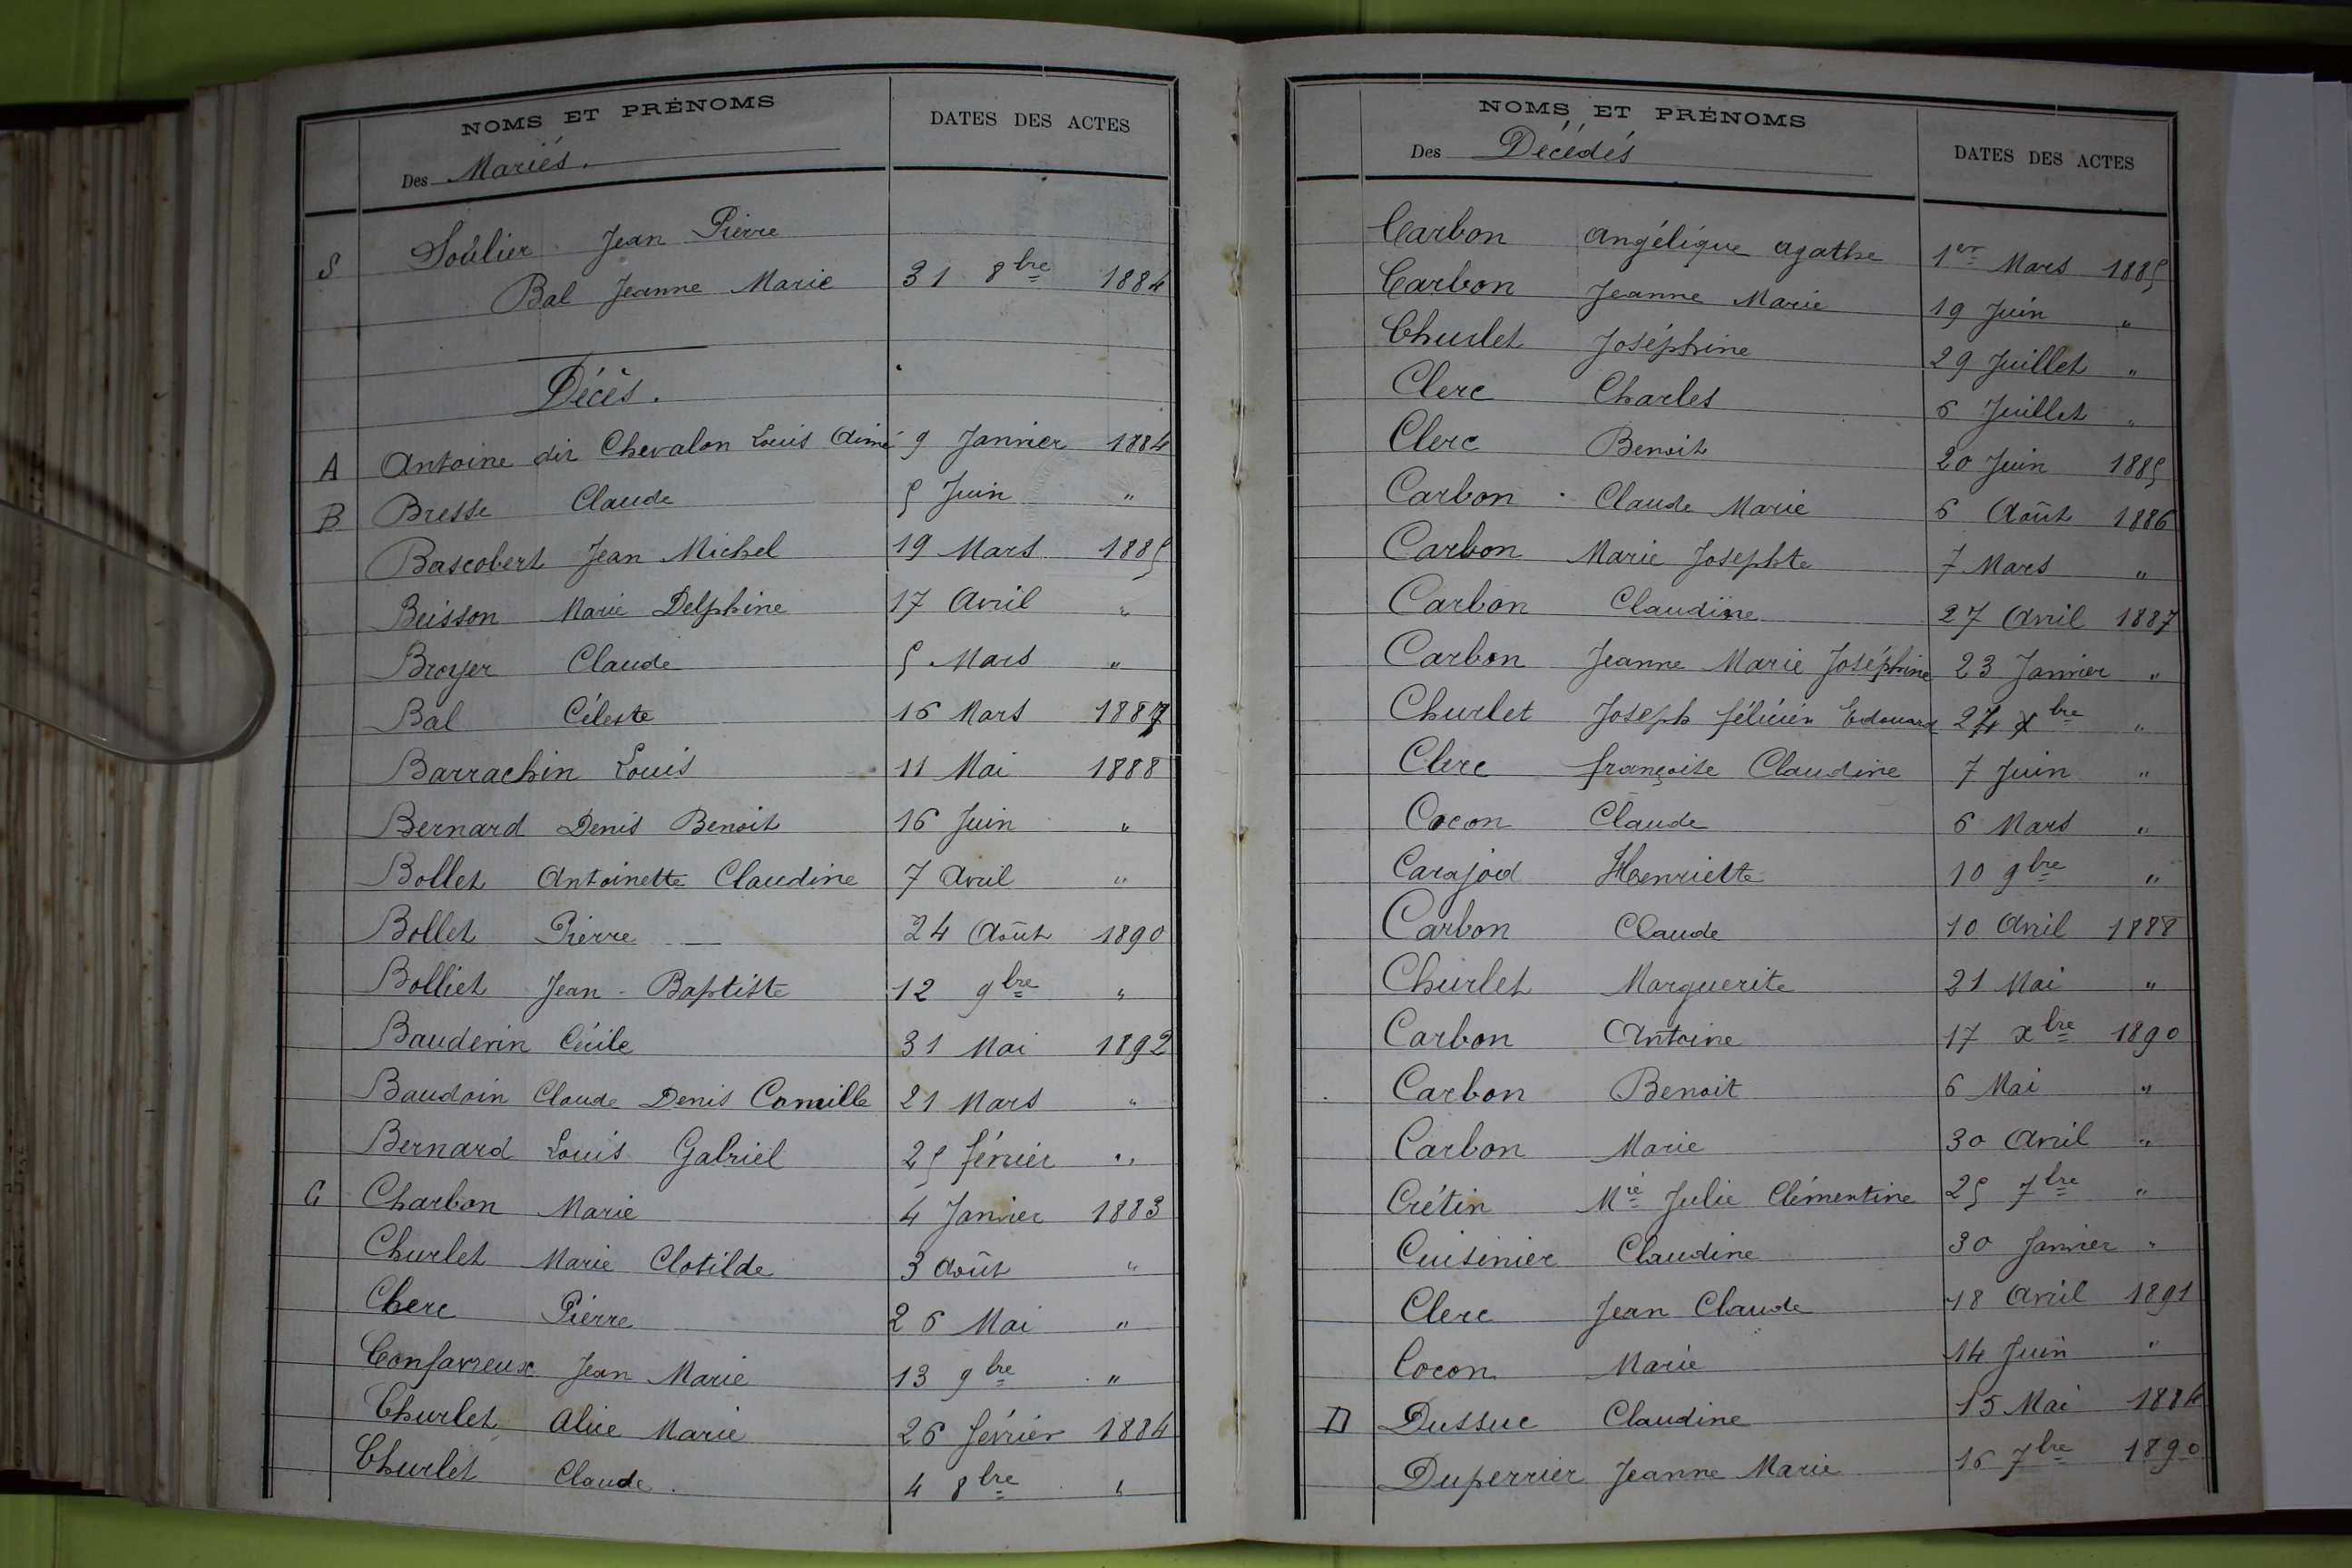 NOMS ET PRÉNOMS DATES DES ACTES
Des Mariés.
S Soülier Jean Pierre
Bal Jeanne Marie 31 8bre 1884
Décès.
A Antoine dit Chevalon Louis Aimé 9 Janvier 1884
B Bresse Claude 5 Juin "
Bascobert Jean Michel 19 Mars 1885
Buisson Marie Delphine 17 Avril "
Broyer Claude 5 Mars "
Bal Céleste 16 Mars 1887
Barrachin Louis 11 Mai 1888
Bernard Denis Benoit 16 Juin "
Bollet Antoinette Claudine 7 Avril "
Bollet Pierre — 24 Août 1890
Bolliet Jean-Baptiste 12 9bre "
Bauderin Cécile 31 Mai 1892
Baudoin Claude Denis Camille 21 Mars "
Bernard Louis Gabriel 25 février "
C Charbon Marie 4 Janvier 1883
Churlet Marie Clotilde 3 Août "
Clerc Pierre 26 Mai "
Confavreux Jean Marie 13 9bre "
Churlet Alice Marie 26 février 1884
Churlet Claude. 4 8bre "
NOMS ET PRÉNOMS DATES DES ACTES
Des Décédés
Carbon Angélique Agathe 1er Mars 1885
Carbon Jeanne Marie 19 Juin "
Churlet Joséphine 29 Juillet "
Clerc Charles 6 Juillet "
Clerc Benoit 20 Juin 1885
Carbon Claude Marie 6 Août 1886
Carbon Marie Josephte 7 Mars "
Carbon Claudine 27 Avril 1887
Carbon Jeanne Marie Joséphine 23 Janvier "
Churlet Joseph félicien Edouard xbre "
Clerc françoise Claudine 7 Juin "
Cocon Claude 6 Mars "
Carajod Henriette 10 9bre "
Carbon Claude 10 Avril 1888
Churlet Marguerite 21 Mai "
Carbon Antoine 17 xbre 1890
Carbon Benoit 6 Mai "
Carbon Marie 30 Avril "
Crétin Mie Julie Clémentine 25 7bre "
Cuisinier Claudine 30 Janvier "
Clerc Jean Claude 18 Avril 1891
Cocon Marie 14 Juin "
D Dussuc Claudine 15 Mai 1884
Duperrier Jeanne Marie 16 7bre 1890